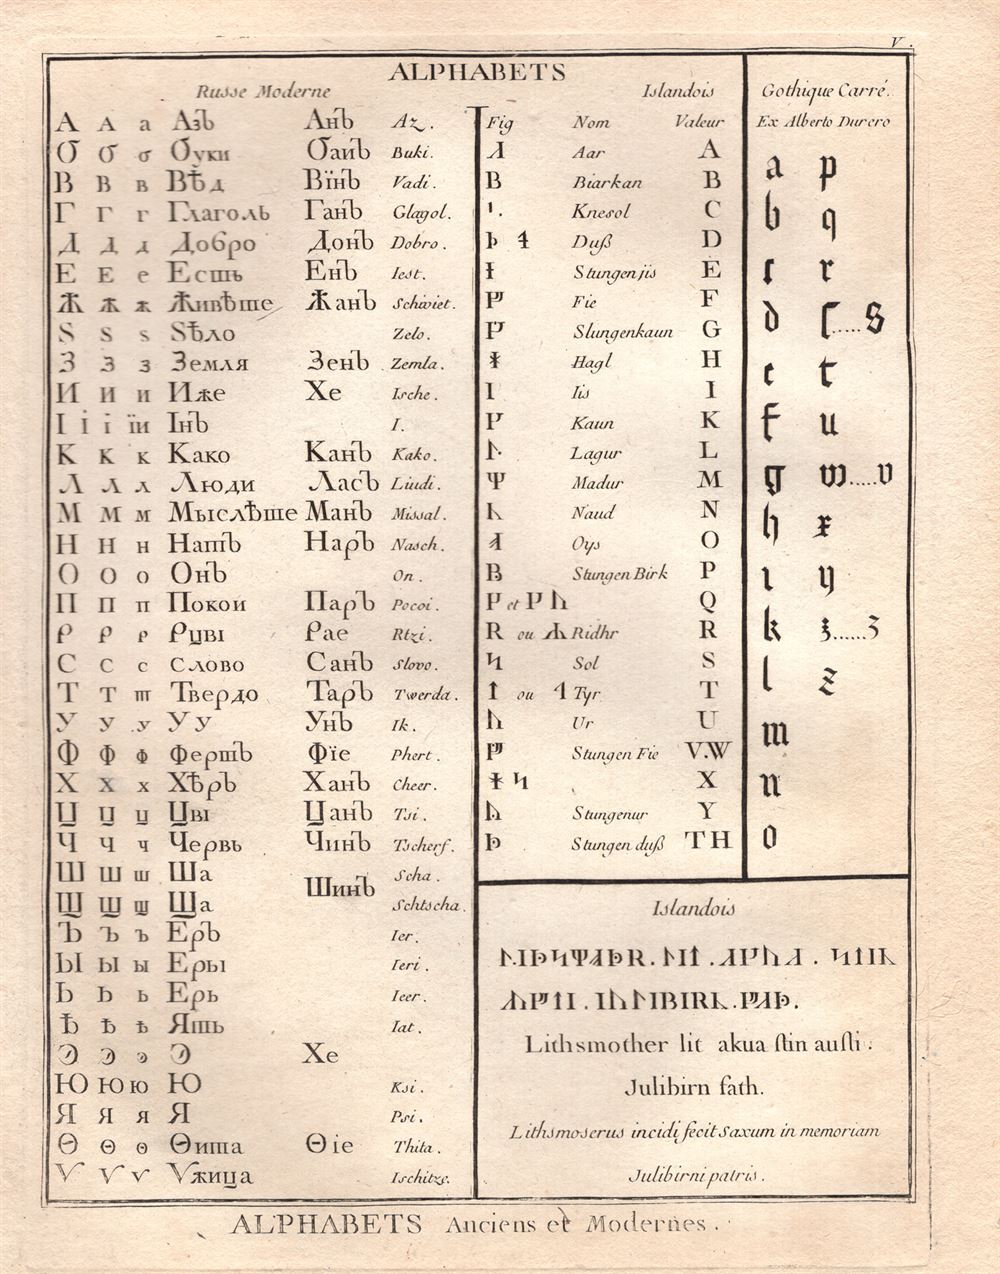 V.
ALPHABETS
Russe Moderne
А А а Азъ Анъ Az.
Б Б б Буки Баиъ Buki.
В В в Вѣд Вїнъ Vadi.
Г Г г Глаголь Ганъ Glagol.
Д Д д Добро Донъ Dobro.
Е Е е Есшь Енъ Iest.
Ж Ж ж Живѣше Жанъ Schiviet.
Ѕ Ѕ ѕ Ѕѣло Zelo.
З З з Земля Зенъ Zemla.
И И и Иже Хе Ische.
І і і їи Інъ I.
К К к Како Канъ Kako.
Л Л л Люди Ласъ Liudi.
М М м Мыслѣше Манъ Missal.
Н Н н Нашъ Наръ Nasch.
О О о Онъ On.
П П п Покои Паръ Pocoi.
Р Р р Рџві Рае Rtzi.
С С с Слово Санъ Slovo.
Т Т т Твердо Таръ Twerda.
У У у У у Унъ Ik.
Ф Ф ф Фершъ Фїе Phert.
Х Х х Хѣръ Ханъ Cheer.
Џ Џ џ Џві Џанъ Tsi.
Ч Ч ч Червь Чинъ Tscherf.
Ш Ш ш Ша Шинъ Scha.
Щ Щ щ Ща Schtscha.
Ъ Ъ ъ Еръ Ier.
Ы Ы ы Еры Ieri.
Ь Ь ь Ерь Ieer.
Ѣ Ѣ ѣ Яшь Iat.
Э Э э Э Хе
Ю Ю ю Ю Ksi.
Я Я я Я Psi.
Ѳ Ѳ ѳ Ѳиша Ѳіе Thita.
Ѵ Ѵ ѵ Ѵжица Ischitze.
Islandois
Fig Nom Valeur
Aar A
Biarkan B
Knesol C
Duß D
Stungenjis E
Fie F
Slungenkaun G
Hagl H
Iis I
Kaun K
Lagur L
Madur M
Naud N
Oys O
Stungen Birk P
et Q
R ou Ridhr R
Sol S
ou Tyr T
Ur U
Stungen Fie V.W
X
Stungenur Y
Stungen duß TH
Gothique Carré.
Ex Alberto Durero
a p
b q
c r
d ſ.....s
e t
f u
g w.....v
h x
i y
k ʒ......ʒ
l z
m
n
o
Islandois
Lithsmother lit akua ſtin auſti.
Julibirn fath.
Lithsmoserus incidi fecit saxum in memoriam
Julibirni patris.
ALPHABETS Anciens et Modernes.